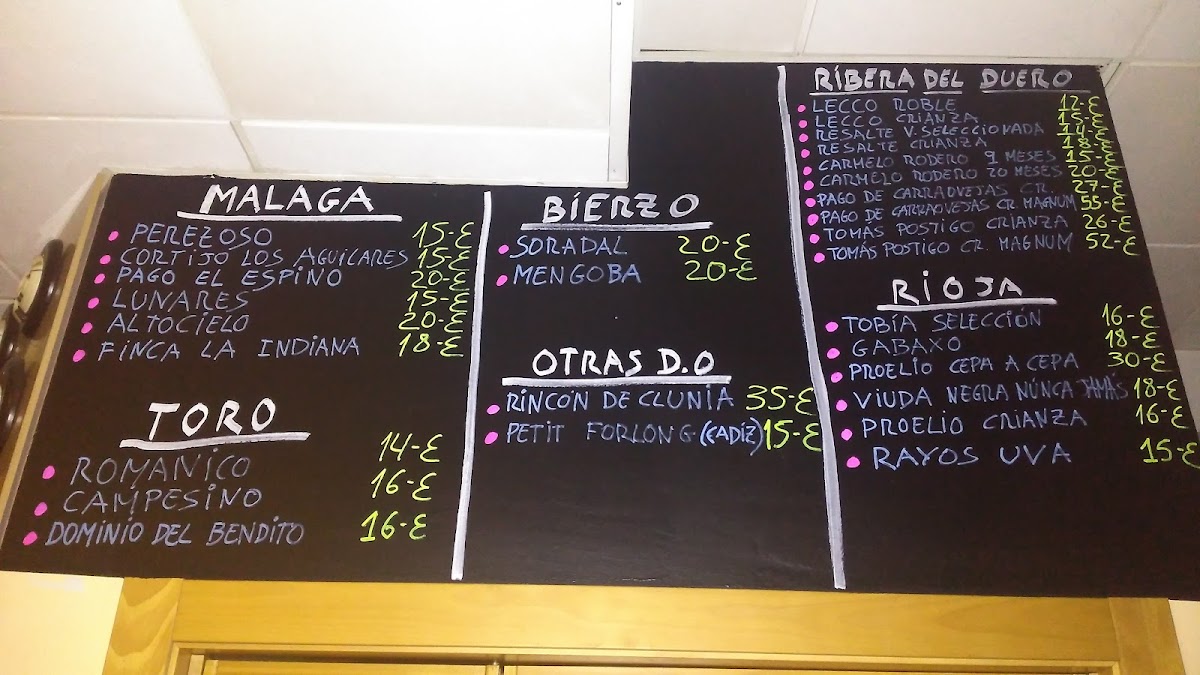 MALAGA
PEREZOSO 15-€
CORTIJO LOS AGUILARES 15-€
PAGO EL ESPINO 20-€
LUNARES 15-€
ALTOCIELO 20-€
FINCA LA INDIANA 18-€
TORO
ROMANICO 14-€
CAMPESINO 16-€
DOMINIO DEL BENDITO 16-€
BIERZO
SORADAL 20-€
MENGOBA 20-€
OTRAS D.O
RINCÓN DE CLUNIA 35-€
PETIT FORLONG (CADIZ) 15-€
RIBERA DEL DUERO
LECCO ROBLE 12-€
LECCO CRIANZA 15-€
RESALTE V. SELECCIONADA 14-€
RESALTE CRIANZA 18-€
CARMELO RODERO 9 MESES 15-€
CARMELO RODERO 20 MESES 20-€
PAGO DE CARRAOVEJAS CR. 27-€
PAGO DE CARRAOVEJAS CR. MAGNUM 55-€
TOMÁS POSTIGO CRIANZA 26-€
TOMÁS POSTIGO CR. MAGNUM 52-€
RIOJA
TOBÍA SELECCIÓN 16-€
GABAXO 18-€
PROELIO CEPA A CEPA 30-€
VIUDA NEGRA NÚNCA JAMÁS 18-€
PROELIO CRIANZA 16-€
RAYOS UVA 15-€